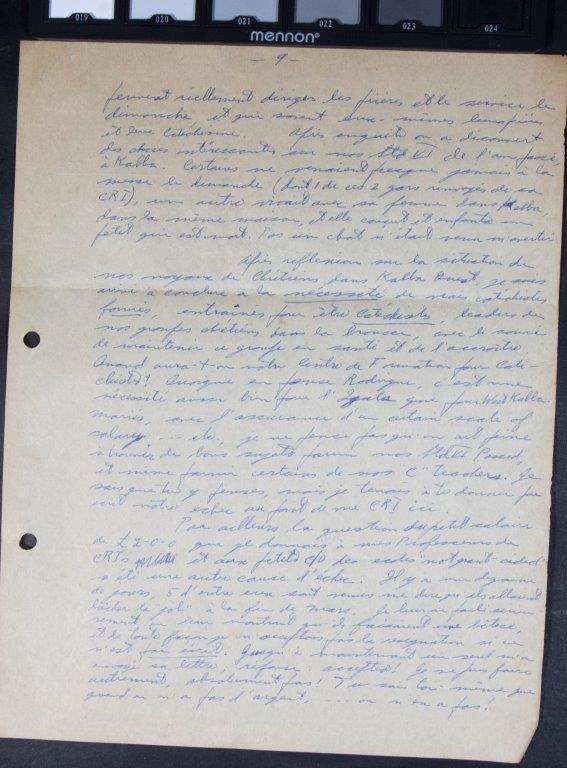 019 020 021 022 023 024
mennon
- 9 -
réellement diriger les prières et le service le
dimanche, et qui savent eux-mêmes leurs prières
et leur catéchisme. Après enquête on a découvert
des choses intéressantes sur nos Std VI de l'an passé
à Kabba. Certains ne venaient presque jamais à la
messe le dimanche (dont 1 de ces 2 gars renvoyés de sa
CRI), un autre vivait avec sa femme dans Kabba,
dans la même maison, et elle conçut et enfanta un
petit qui est mort. Pas un chat n'était venu m'avertir
Après réflexion sur la situation de
nos noyaux de Chrétiens dans Kabba Ouest, je suis
arrivé à conclure à la nécessité de vrais catéchistes
formés, entraînés pour être catéchists, leaders de
nos groupes chrétiens dans la brousse, avec le souci
de maintenir ce groupe en santé et de l'accroître.
Quand aura-t-on notre Centre de Formation pour Caté-
chists? Quoique en pense Rodrigue, c'est une
nécessité aussi bien pour l'Igala que pour West Kabba.
mariés, avec l'assurance d'un certain scale of
salary ... etc. je ne pense pas qu'on ait peine
à trouver de bons sujets parmi nos Std VI Passed,
et même parmi certains de nos "C" teachers. Je
sais que tu y penses, mais je tenais à te donner
notre échec au point de vue CRI ici.
Par ailleurs la question du petit salaire
de £2-0-0 que je donnais à mes Professeurs de
CRIs et aux petits c/o des écoles "not grant-aided"
a été une autre cause d'échec. Il y a une dizaine
de jours, 5 d'entre eux sont venus me dire qu'ils allaient
lâcher la "job" à la fin de mars. Je leur ai parlé
en leur montrant qu'ils faisaient une bêtise,
et de toute façon je n'acceptais pas la resignation si ce
n'est par écrit. Jusqu'à maintenant un seul m'a
envoyé sa lettre, réponse: accepted! Je ne puis faire
autrement, absolument pas! Tu sais toi-même que
quand on n'a pas d'argent, .... on n'en a pas!